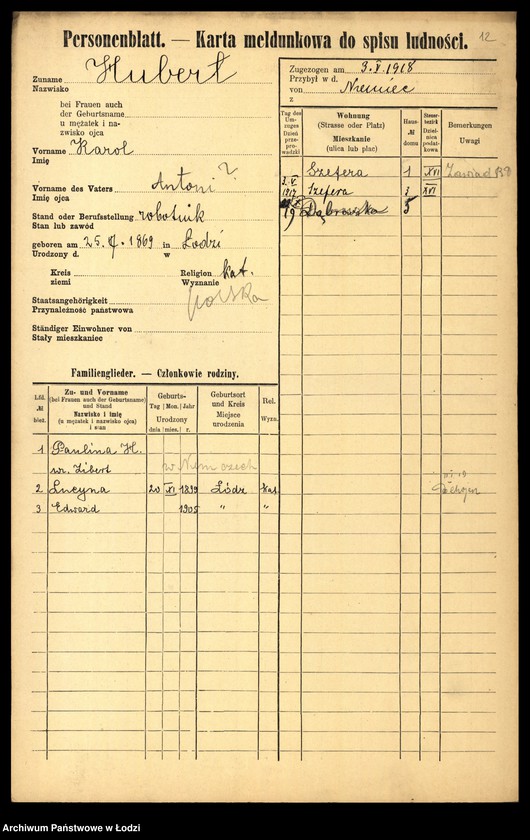 12
Personenblatt. — Karta meldunkowa do spisu ludności.
Zuname Hubert
Nazwisko
bei Frauen auch
der Geburtsname
u mężatek i na-
zwisko ojca
Vorname Karol
Imię
Vorname des Vaters Antoni ?
Imię ojca
Stand oder Berufsstellung robotnik
Stan lub zawód
geboren am 25. 1869 in Łodzi
Urodzony d. w
Kreis Religion kat.
ziemi Wyznanie
Staatsangehörigkeit polska
Przynależność państwowa
Ständiger Einwohner von
Stały mieszkaniec
Zugezogen am 3. V. 1918
Przybył w d.
von Niemiec
z
Tag des Umzuges Dzień przeprowadzki
Wohnung (Strasse oder Platz) Mieszkanie (ulica lub plac)
Haus- № domu
Steuerbezirk Dzielnica podatkowa
Bemerkungen Uwagi
Szefera 1 XVI
3. V 1917 Szefera 3 XVI
19 Dąbrowska 5
Familienglieder. — Członkowie rodziny.
Lfd. № bież.
Zu- und Vorname (bei Frauen auch der Geburtsname) und Stand Nazwisko i imię (u mężatek i nazwisko ojca) i stan
Geburts- Tag Mon. Jahr Urodzony dnia mies. r.
Geburtsort und Kreis Miejsce urodzenia
Rel. Wyzn.
1 Paulina H.
ur. Libert w Niemczech
2 Lucyna 20 XI 1899 Łódź kat
3 Edward 1905 " "
Archiwum Państwowe w Łodzi